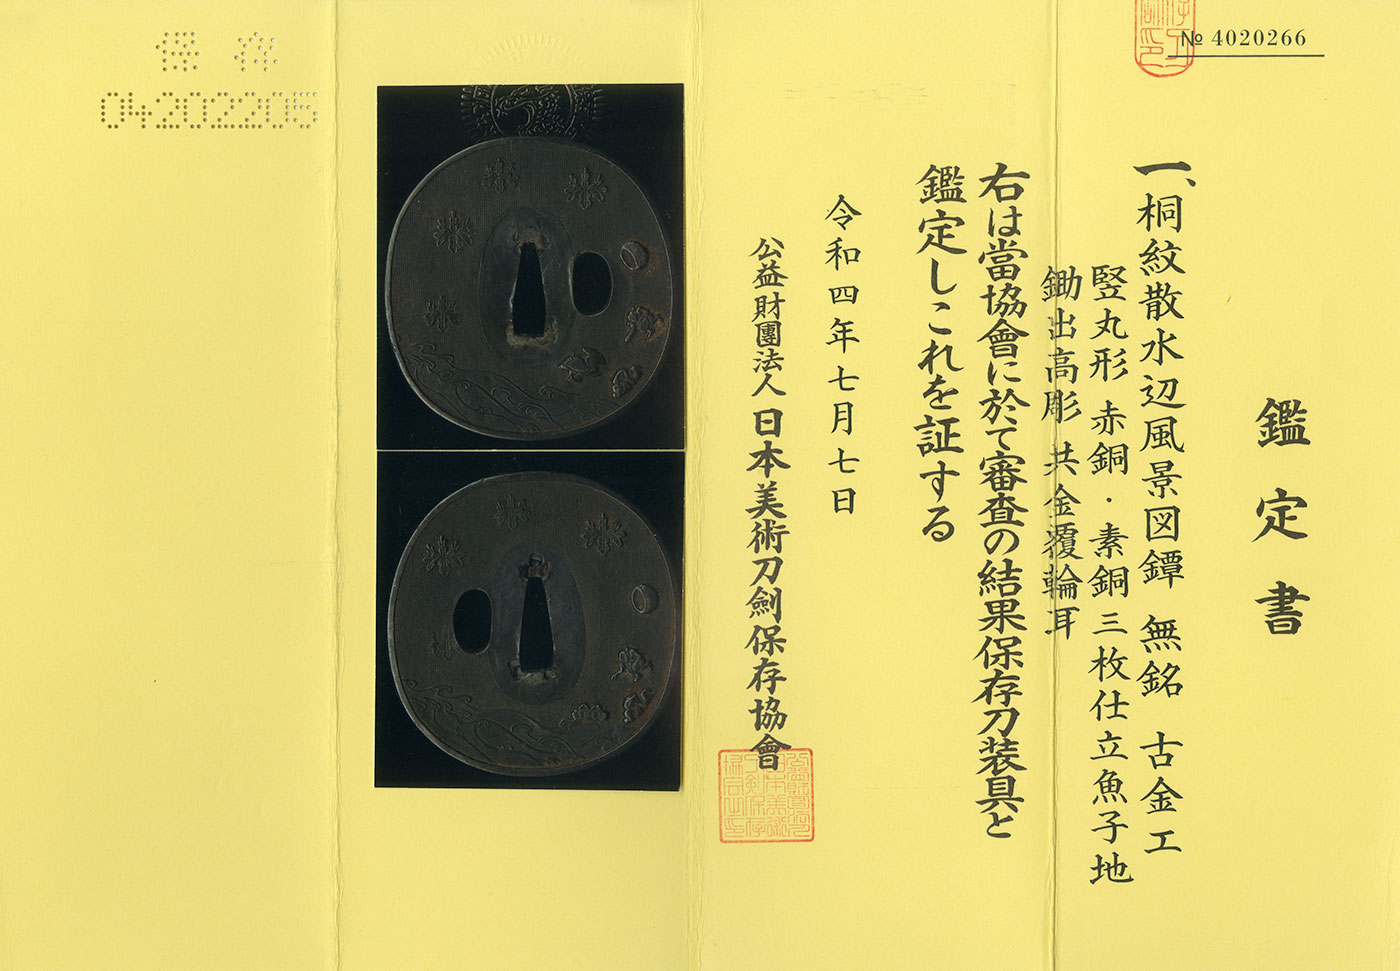 № 4020266
鑑定書
一、桐紋散水辺風景図鐔 無銘 古金工
竪丸形 赤銅・素銅三枚仕立魚子地
鋤出高彫 共金覆輪耳
右は當協會に於て審査の結果保存刀装具と
鑑定しこれを証する
令和四年七月七日
公益財團法人 日本美術刀劍保存協會
保存
04202205